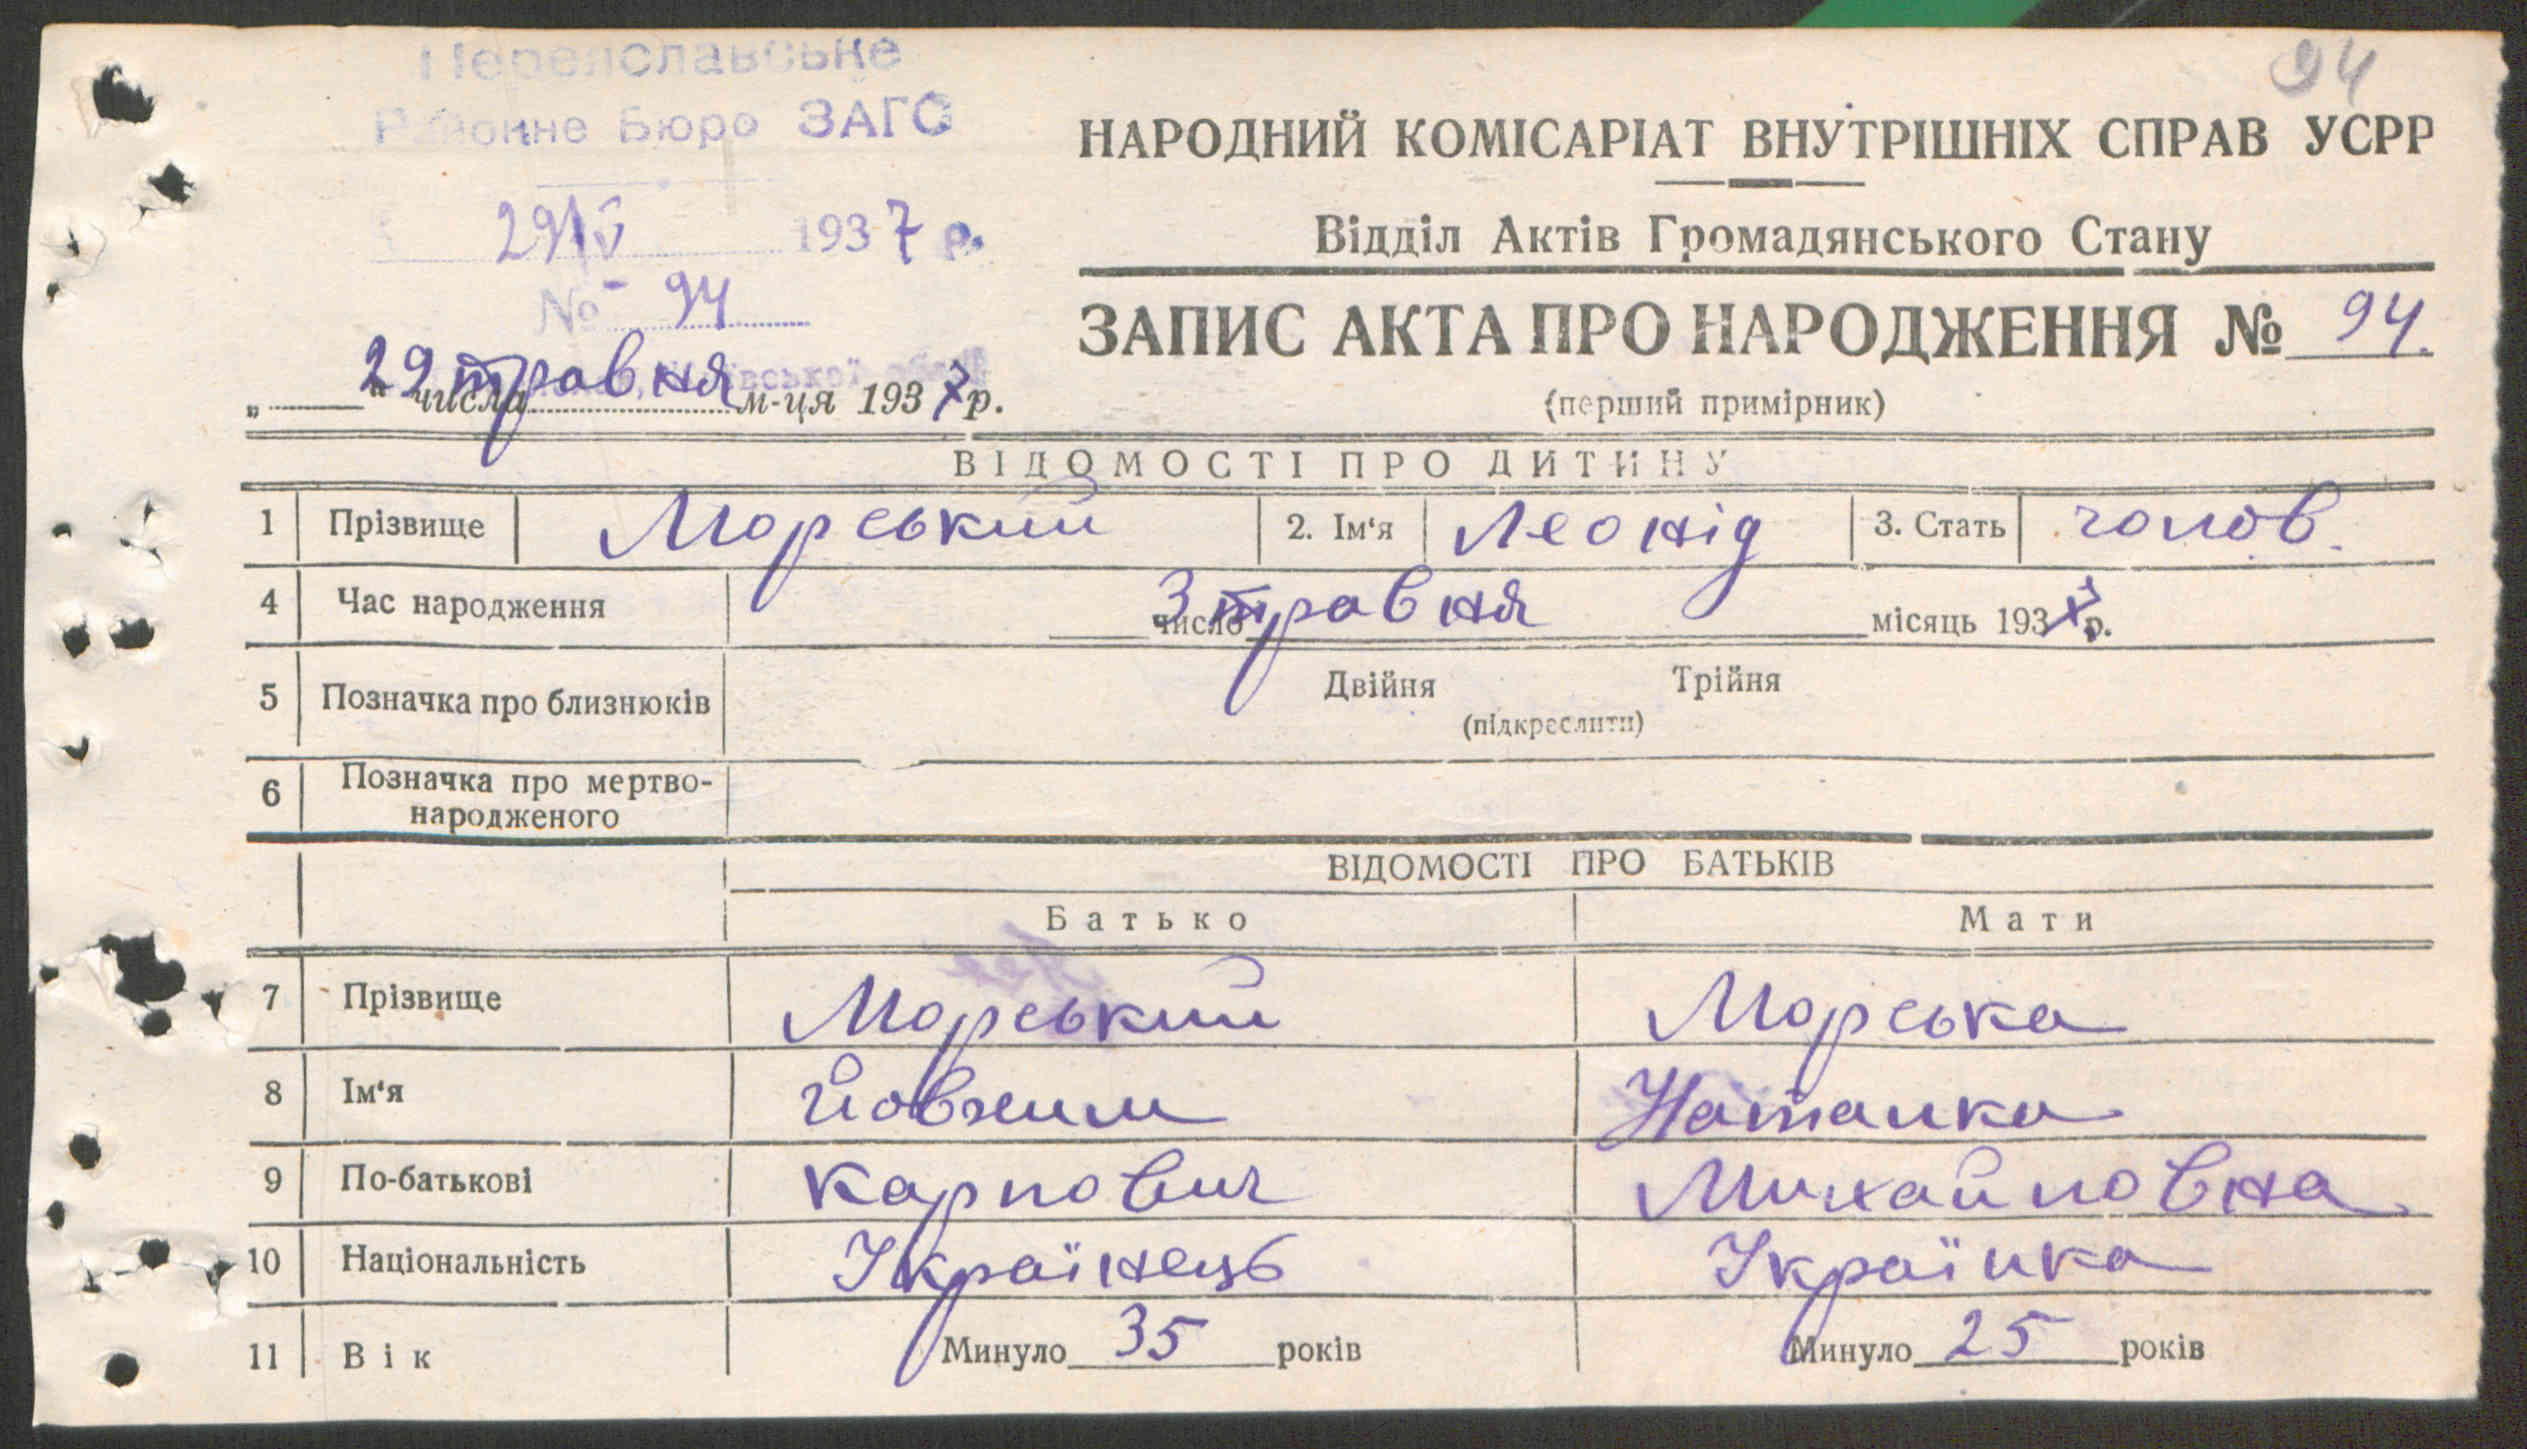 94
Переяславське
Районне Бюро ЗАГС
29/V 1937 р.
№ 94
НАРОДНИЙ КОМІСАРІАТ ВНУТРІШНІХ СПРАВ УСРР
Відділ Актів Громадянського Стану
ЗАПИС АКТА ПРО НАРОДЖЕННЯ № 94.
(перший примірник)
„ 29 “ числа травня м-ця 1937 р.
ВІДОМОСТІ ПРО ДИТИНУ
1 Прізвище Морський 2. Ім'я Леонід 3. Стать чолов.
4 Час народження 3 число травня місяць 1937 р.
5 Позначка про близнюків Двійня Трійня
(підкреслити)
6 Позначка про мертво-
народженого
ВІДОМОСТІ ПРО БАТЬКІВ
Батько Мати
7 Прізвище Морський Морська
8 Ім'я Йовхим Наталка
9 По-батькові Карпович Михайловна
10 Національність Українець Українка
11 Вік Минуло 35 років Минуло 25 років